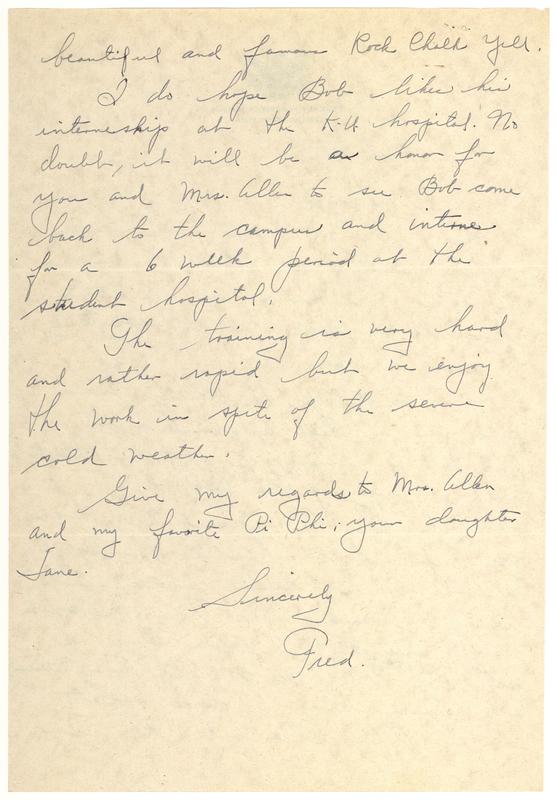 beautiful and famous Rock Chalk Yell.
I do hope Bob likes his
interneship at the K.U. hospital. No
doubt, it will be an honor for
you and Mrs. Allen to see Bob come
back to the campus and interne
for a 6 week period at the
student hospital.
The training is very hard
and rather rapid but we enjoy
the work in spite of the severe
cold weather.
Give my regards to Mrs. Allen
and my favorite Pi Phi; your daughter
Jane.
Sincerely
Fred.